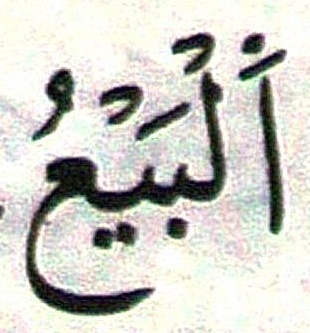 اَلْبَيْعُ